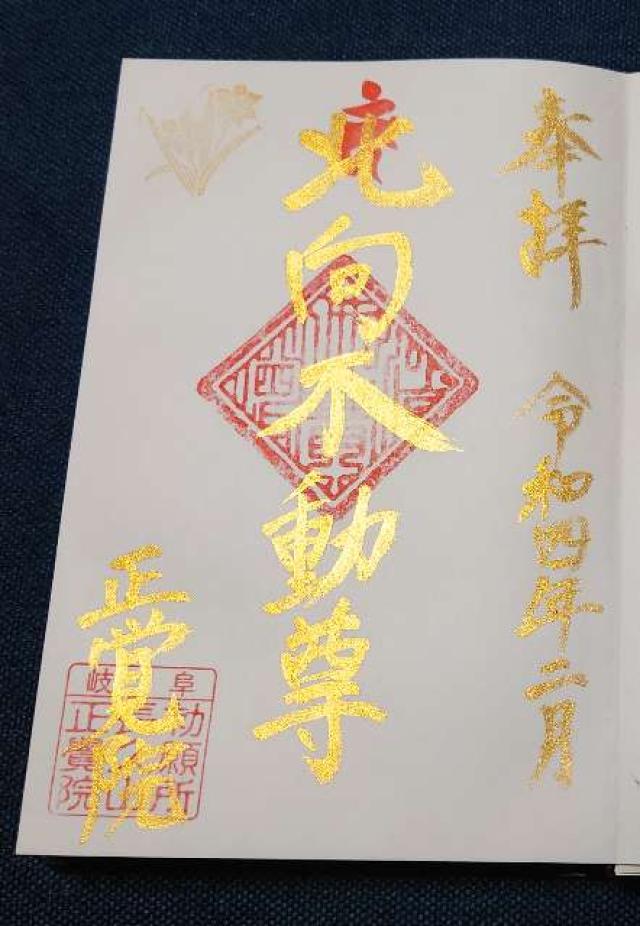 奉拝 令和四年二月
北向不動尊
正覚院
岐阜
勅願所
長
正覚院